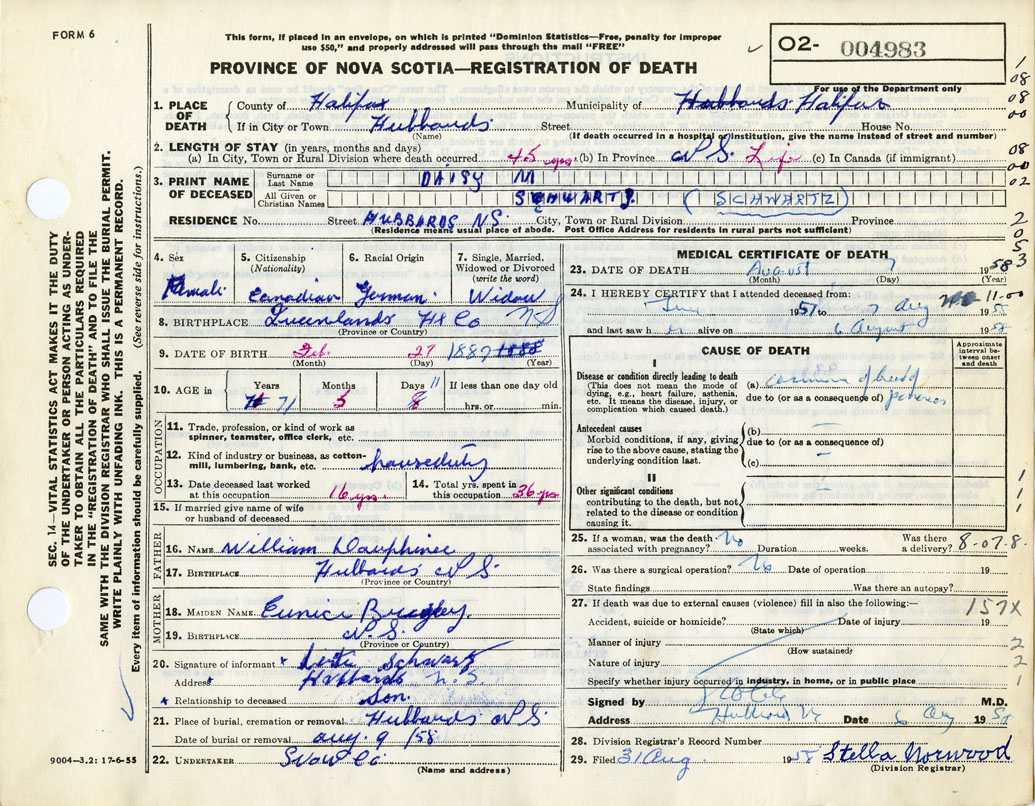 FORM 6
This form, if placed in an envelope, on which is printed "Dominion Statistics—Free, penalty for improper
use $50," and properly addressed will pass through the mail "FREE"
PROVINCE OF NOVA SCOTIA—REGISTRATION OF DEATH
O2- 004983
For use of the Department only
1. PLACE OF DEATH
County of Halifax Municipality of Hubbards Halifax
If in City or Town Hubbards Street House No.
(Name) (If death occurred in a hospital or institution, give the name instead of street and number)
2. LENGTH OF STAY (in years, months and days)
(a) In City, Town or Rural Division where death occurred 45 yrs. (b) In Province N.S. Life (c) In Canada (if immigrant)
3. PRINT NAME OF DECEASED
Surname or Last Name DAISY M
All Given or Christian Names SCHWARTZ (SCHWARTZ)
RESIDENCE No. Street HUBBARDS N.S. City, Town or Rural Division Province
(Residence means usual place of abode. Post Office Address for residents in rural parts not sufficient)
4. Sex
Female
5. Citizenship
(Nationality)
Canadian
6. Racial Origin
German
7. Single, Married, Widowed or Divorced
(write the word)
Widow
8. BIRTHPLACE Queenlands Hx Co NS
(Province or Country)
9. DATE OF BIRTH Feb. 27 1887
(Month) (Day) (Year)
10. AGE in Years Months Days If less than one day old
71 5 11 8 hrs. or min.
OCCUPATION
11. Trade, profession, or kind of work as spinner, teamster, office clerk, etc.
12. Kind of industry or business, as cotton-mill, lumbering, bank, etc. houseduty
13. Date deceased last worked at this occupation 16 yrs.
14. Total yrs. spent in this occupation 36 yrs
15. If married give name of wife or husband of deceased
FATHER
16. NAME William Dauphinee
17. BIRTHPLACE Hubbards N.S.
(Province or Country)
MOTHER
18. MAIDEN NAME Eunice
19. BIRTHPLACE N.S.
(Province or Country)
20. Signature of informant x Schwartz
Address Hubbards N.S.
x Relationship to deceased Son.
21. Place of burial, cremation or removal Hubbards N.S.
Date of burial or removal aug. 9 /58
22. UNDERTAKER Snow Co
(Name and address)
9004—3.2: 17-6-55
MEDICAL CERTIFICATE OF DEATH
23. DATE OF DEATH August 7 1958
(Month) (Day) (Year)
24. I HEREBY CERTIFY that I attended deceased from:
1957 to 7 Aug 11-00 1958
and last saw her alive on 6 August 1958
CAUSE OF DEATH
Approximate interval between onset and death
I
Disease or condition directly leading to death
(This does not mean the mode of dying, e.g., heart failure, asthenia, etc. It means the disease, injury, or complication which caused death.)
(a) carcinoma of head of
due to (or as a consequence of) pancreas
Antecedent causes
Morbid conditions, if any, giving rise to the above cause, stating the underlying condition last.
(b) —
due to (or as a consequence of)
(c) —
II
Other significant conditions
contributing to the death, but not related to the disease or condition causing it.
25. If a woman, was the death associated with pregnancy? No Duration weeks. Was there a delivery? 8-07.8.
26. Was there a surgical operation? No Date of operation 19
State findings Was there an autopsy?
27. If death was due to external causes (violence) fill in also the following:— 157X
Accident, suicide or homicide? Date of injury 19
(State which)
Manner of injury
(How sustained)
Nature of injury
Specify whether injury occurred in industry, in home, or in public place
Signed by M.D.
Address Hubbards NS Date 6 Aug 1958
28. Division Registrar's Record Number
29. Filed 31 Aug. 1958 Stella Norwood
(Division Registrar)
1
08
08
00
08
00
02
2
0
5
3
1
1
1
2
2
1
SEC. 14—VITAL STATISTICS ACT MAKES IT THE DUTY
OF THE UNDERTAKER OR PERSON ACTING AS UNDER-
TAKER TO OBTAIN ALL THE PARTICULARS REQUIRED
IN THE "REGISTRATION OF DEATH" AND TO FILE THE
SAME WITH THE DIVISION REGISTRAR WHO SHALL ISSUE THE BURIAL PERMIT.
WRITE PLAINLY WITH UNFADING INK. THIS IS A PERMANENT RECORD.
Every item of information should be carefully supplied. (See reverse side for instructions.)